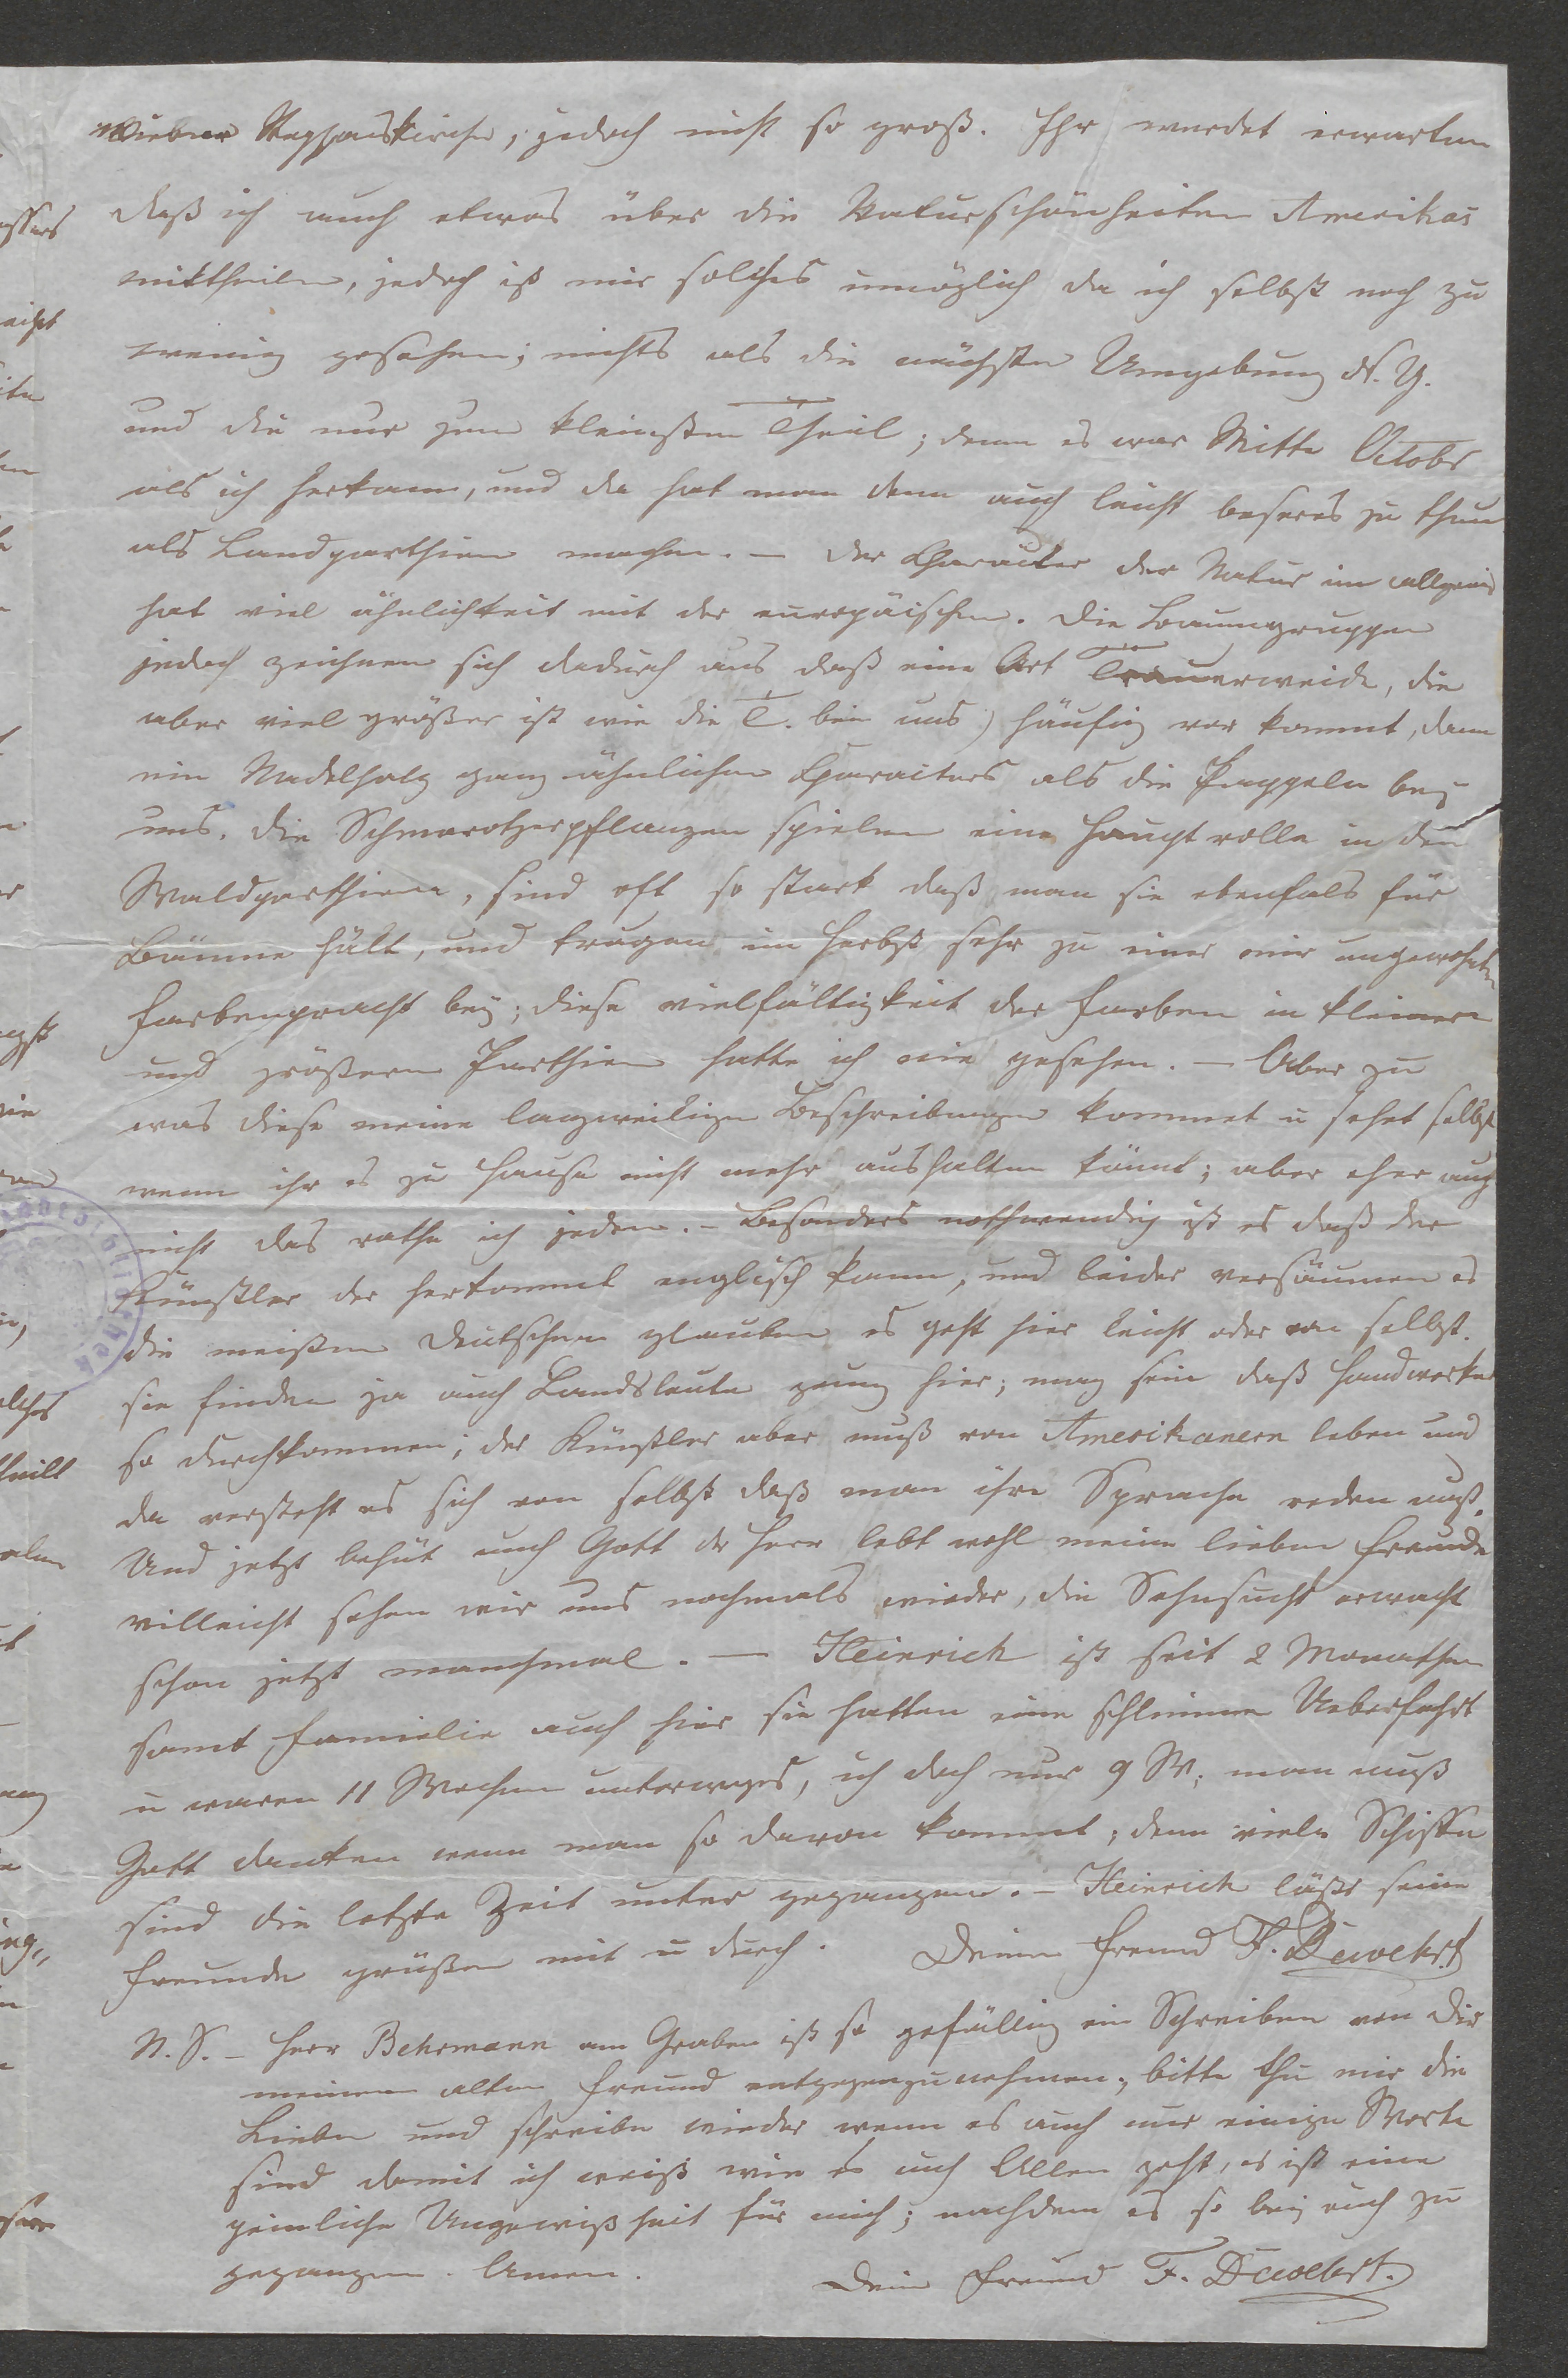 Wiener Stephanskirche, jedoch nicht so groß. Ihr werdet erwarten
daß ich auch etwas über die Naturschönheiten Amerikas
mittheile, jedoch ist mir solches unmöglich da ich selbst noch zu
wenig gesehen; nichts als die nächste Umgebung N. Y.
und die nur zum kleinsten Theil; denn es war Mitte Octobr
als ich herkam, und da hat man denn auch leicht beseres zu thun
als Landparthien machen. — Der Character der Natur im allgemein
hat viel ähnlichkeit mit der europäischen. Die Baumgruppen
jedoch zeichnen sich dadurch aus daß eine Art Trauerweide, die
aber viel größer ist wie die T. bei uns) häufig vor kommt, dann
ein Nadelholz ganz ähnlichen Characters als die Pappeln bey
uns. Die Schmarotzerpflanzen spielen eine Hauptrolle in den
Waldparthien, sind oft so stark daß man sie ebenfals für
Bäume hält, und tragen im Herbst sehr zu einer mir ungewohnten
Farbenpracht bey; diese vielfältigkeit der Farben in kleinern
und größern Parthien hatte ich nie gesehen. — Aber zu
was diese meine langweiligen Beschreibungen kommet u sehet selbst
wenn ihr es zu Hause nicht mehr aushalten könnt; aber eher auch
nicht das rathe ich jedem. — Besonders nothwendig ist es daß der
Künstler der herkommt englisch kann, und leider versäumen es
die meisten Deutschen glauben es geht hier leicht oder von selbst.
sie finden ja auch Landsleute genug hier; mag sein daß Handwerker
so durchkommen; der Künstler aber muß von Amerikanern leben und
da versteht es sich von selbst daß man ihre Sprache reden muß.
Und jetzt behüt euch Gott der Herr lebt wohl meine lieben Freunde
villeicht sehen wir uns nochmals wieder, die Sehnsucht erwacht
schon jetzt manchmal. — Heinrich ist seit 2 Monathen
samt Familie auch hier sie hatten eine schlimme Ueberfahrt
u waren 11 Wochen unterweges, ich doch nur 9 W. man muß
Gott danken wenn man so davon kommt; denn viele Schiffe
sind die letzte Zeit unter gegangen. — Heinrich läßt seine
Freunde grüßen mit u durch. Deinen Freund F.
N. S. — Herr Behrmann am Graben ist so gefällig ein Schreiben von Dir
meinem alten Freund entgegenzunehmen; bitte thu mir die
Liebe und schreibe wieder wenn es auch nur einige Worte
sind damit ich weiß wie es euch Allen geht, es ist eine
peinliche Ungewißheit für mich; nachdem es so bey euch zu
gegangen. Amen. Dein Freund F.